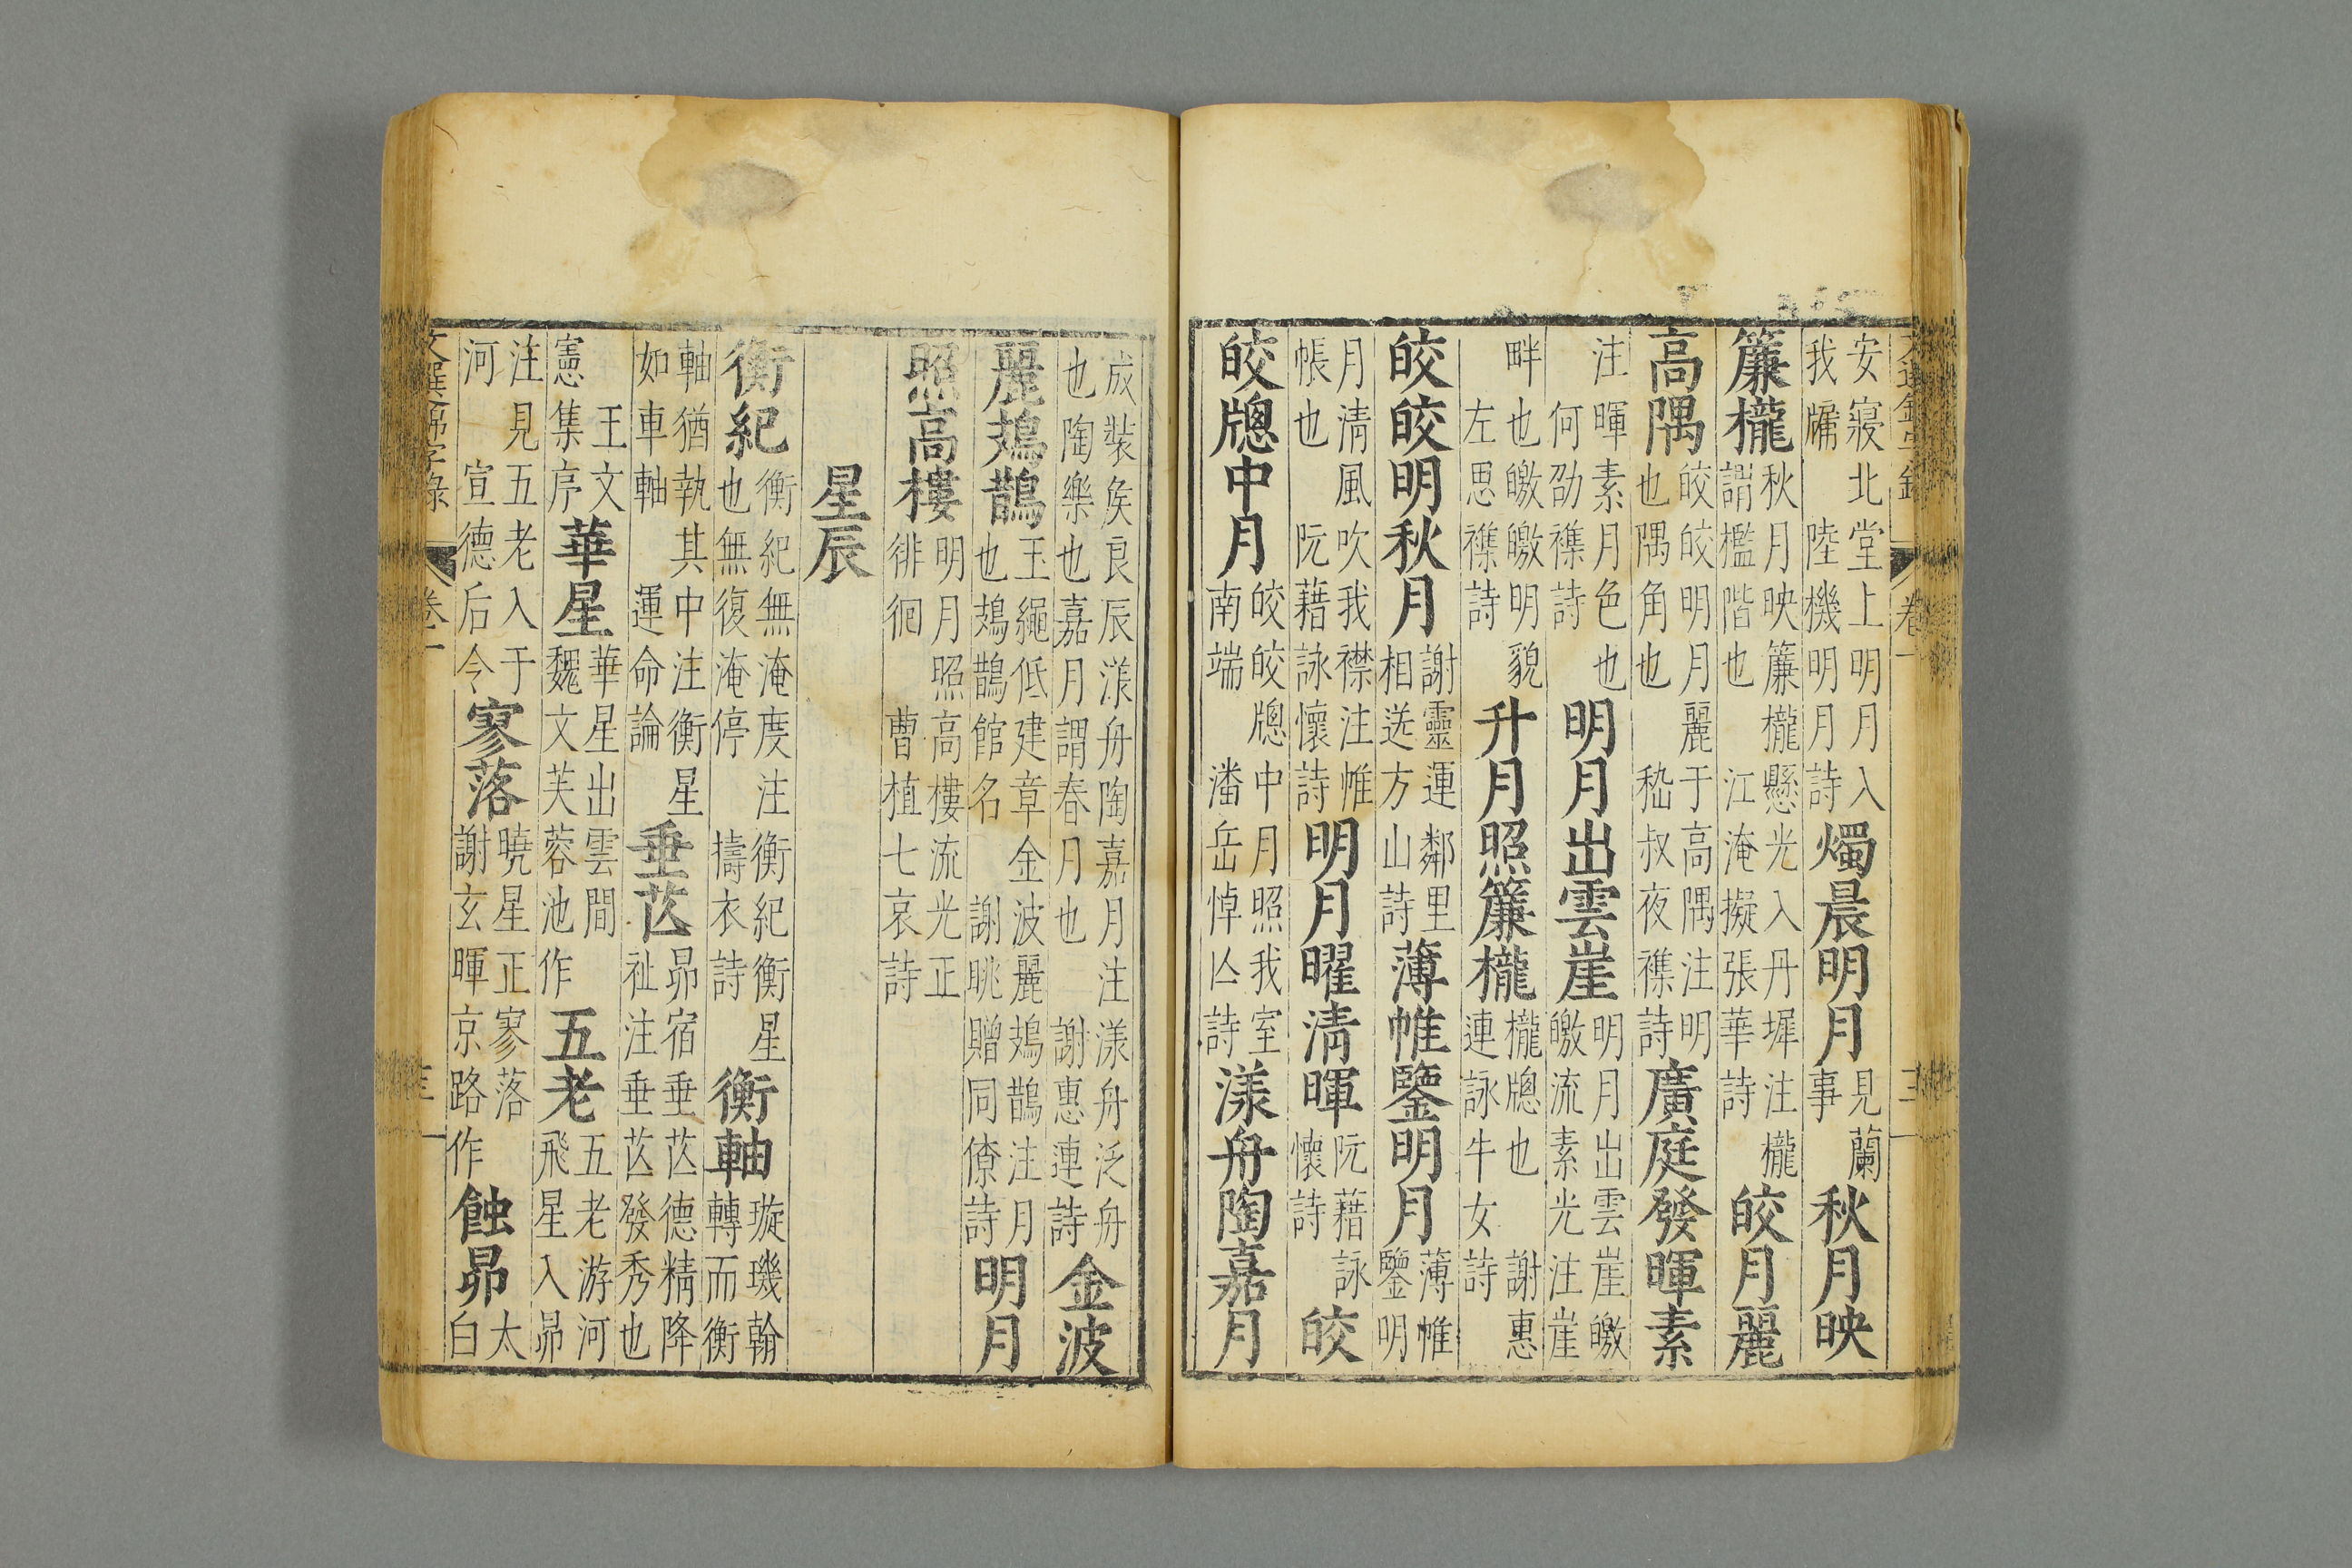 文選錦字錄 卷一 三
安寢北堂上明月入我牖 陸機明月詩 燭晨明月 見蘭事 秋月映
簾櫳 秋月映簾櫳懸光入丹墀注櫳謂檻階也 江淹擬張華詩 皎月麗
高隅 皎皎明月麗于高隅注明也隅角也 嵇叔夜襍詩 廣庭發暉素
注暉素月色也 何劭襍詩 明月出雲崖 明月出雲崖皦皦流素光注崖
畔也皦皦明貌 左思襍詩 升月照簾櫳 櫳牕也 謝惠連詠牛女詩
皎皎明秋月 謝靈運鄰里相送方山詩 薄帷鑒明月 薄帷鑒明
月清風吹我襟注帷帳也 阮藉詠懷詩 明月曜清暉 阮藉詠懷詩 皎
皎牕中月 皎皎牕中月照我室南端 潘岳悼亾詩 漾舟陶嘉月
成裝矦良辰漾舟陶嘉月注漾舟泛舟也陶樂也嘉月謂春月也 謝惠連詩 金波
麗鳷鵲 玉繩低建章金波麗鳷鵲注月也鳷鵲館名 謝眺贈同僚詩 明月
照高樓 明月照高樓流光正徘徊 曹植七哀詩
星辰
衡紀 衡紀無淹度注衡紀衡星也無復淹停 擣衣詩 衡軸 璇璣斡轉而衡
軸猶執其中注衡星如車軸 運命論 垂芒 昴宿垂芒德精降祉注垂芒發秀也
王文憲集序 華星 華星出雲間魏文芙蓉池作 五老 五老游河飛星入昴
注見五老入于河 宣德后令 寥落 曉星正寥落謝玄暉京路作 蝕昴 太白
文選錦字錄 卷一